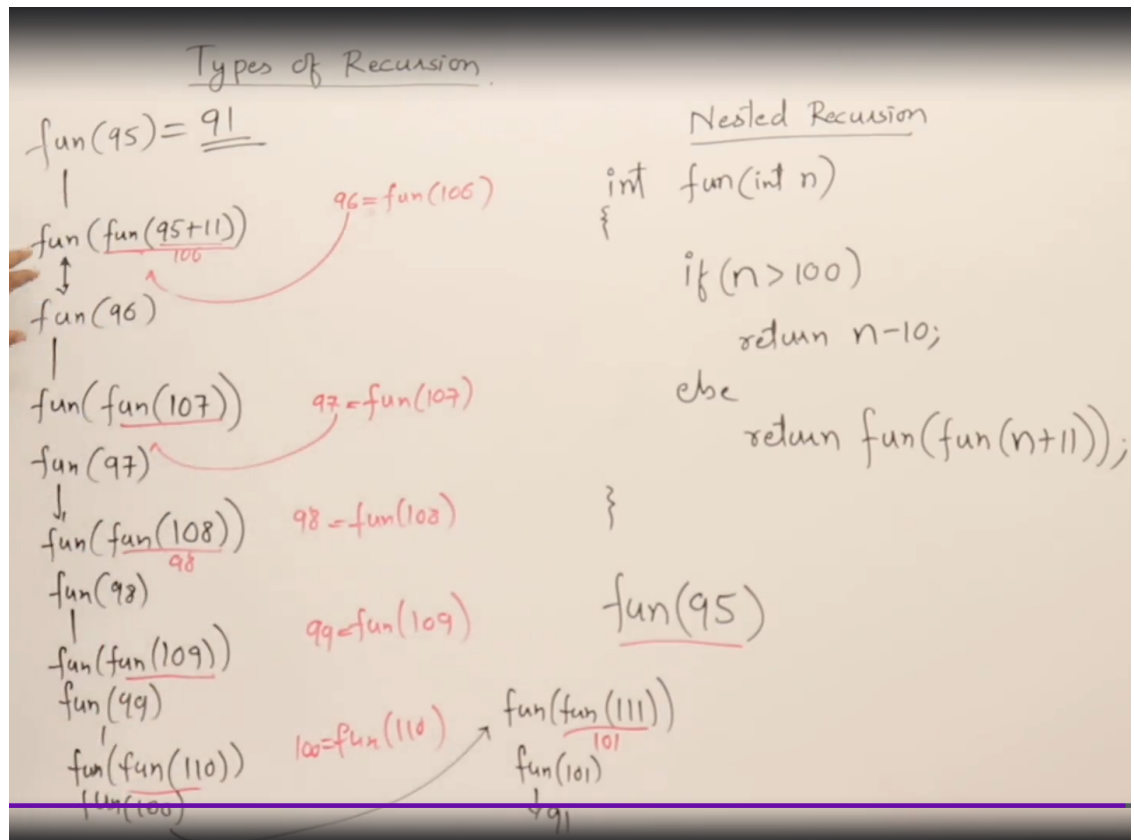 Types of Recursion
fun(95) = 91
fun(fun(95+11))
106
96 = fun(106)
fun(96)
fun(fun(107))
97 = fun(107)
fun(97)
fun(fun(108))
98
98 = fun(108)
fun(98)
fun(fun(109))
99 = fun(109)
fun(99)
fun(fun(110))
100 = fun(110)
fun(100)
fun(fun(111))
101
fun(101)
91
Nested Recursion
int fun(int n)
{
if (n>100)
return n-10;
else
return fun(fun(n+11));
}
fun(95)